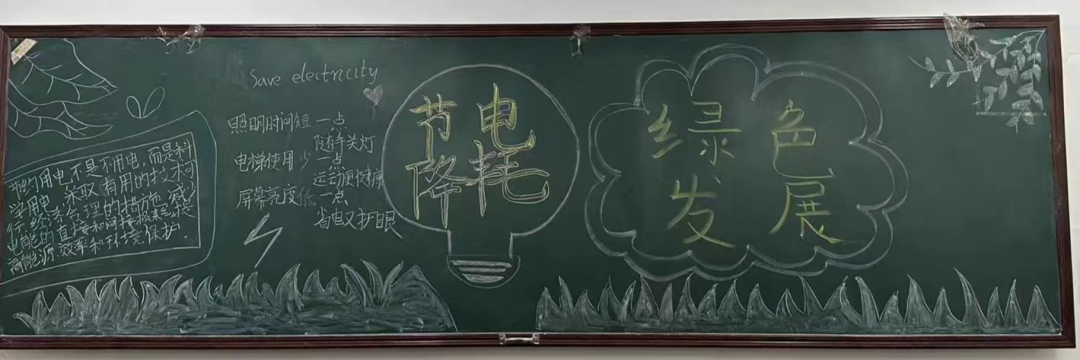 节约用电,不是不用电,而是科
学用电,采取有用的技术可
行,经济合理的措施,减少
电能的直接和间接损耗,提
高能源效率和环境保护.
Save electricity
照明时间短一点
随手关灯
电梯使用少一点
运动更健康
屏幕亮度低一点
省电又护眼
节电
降耗
绿色
发展